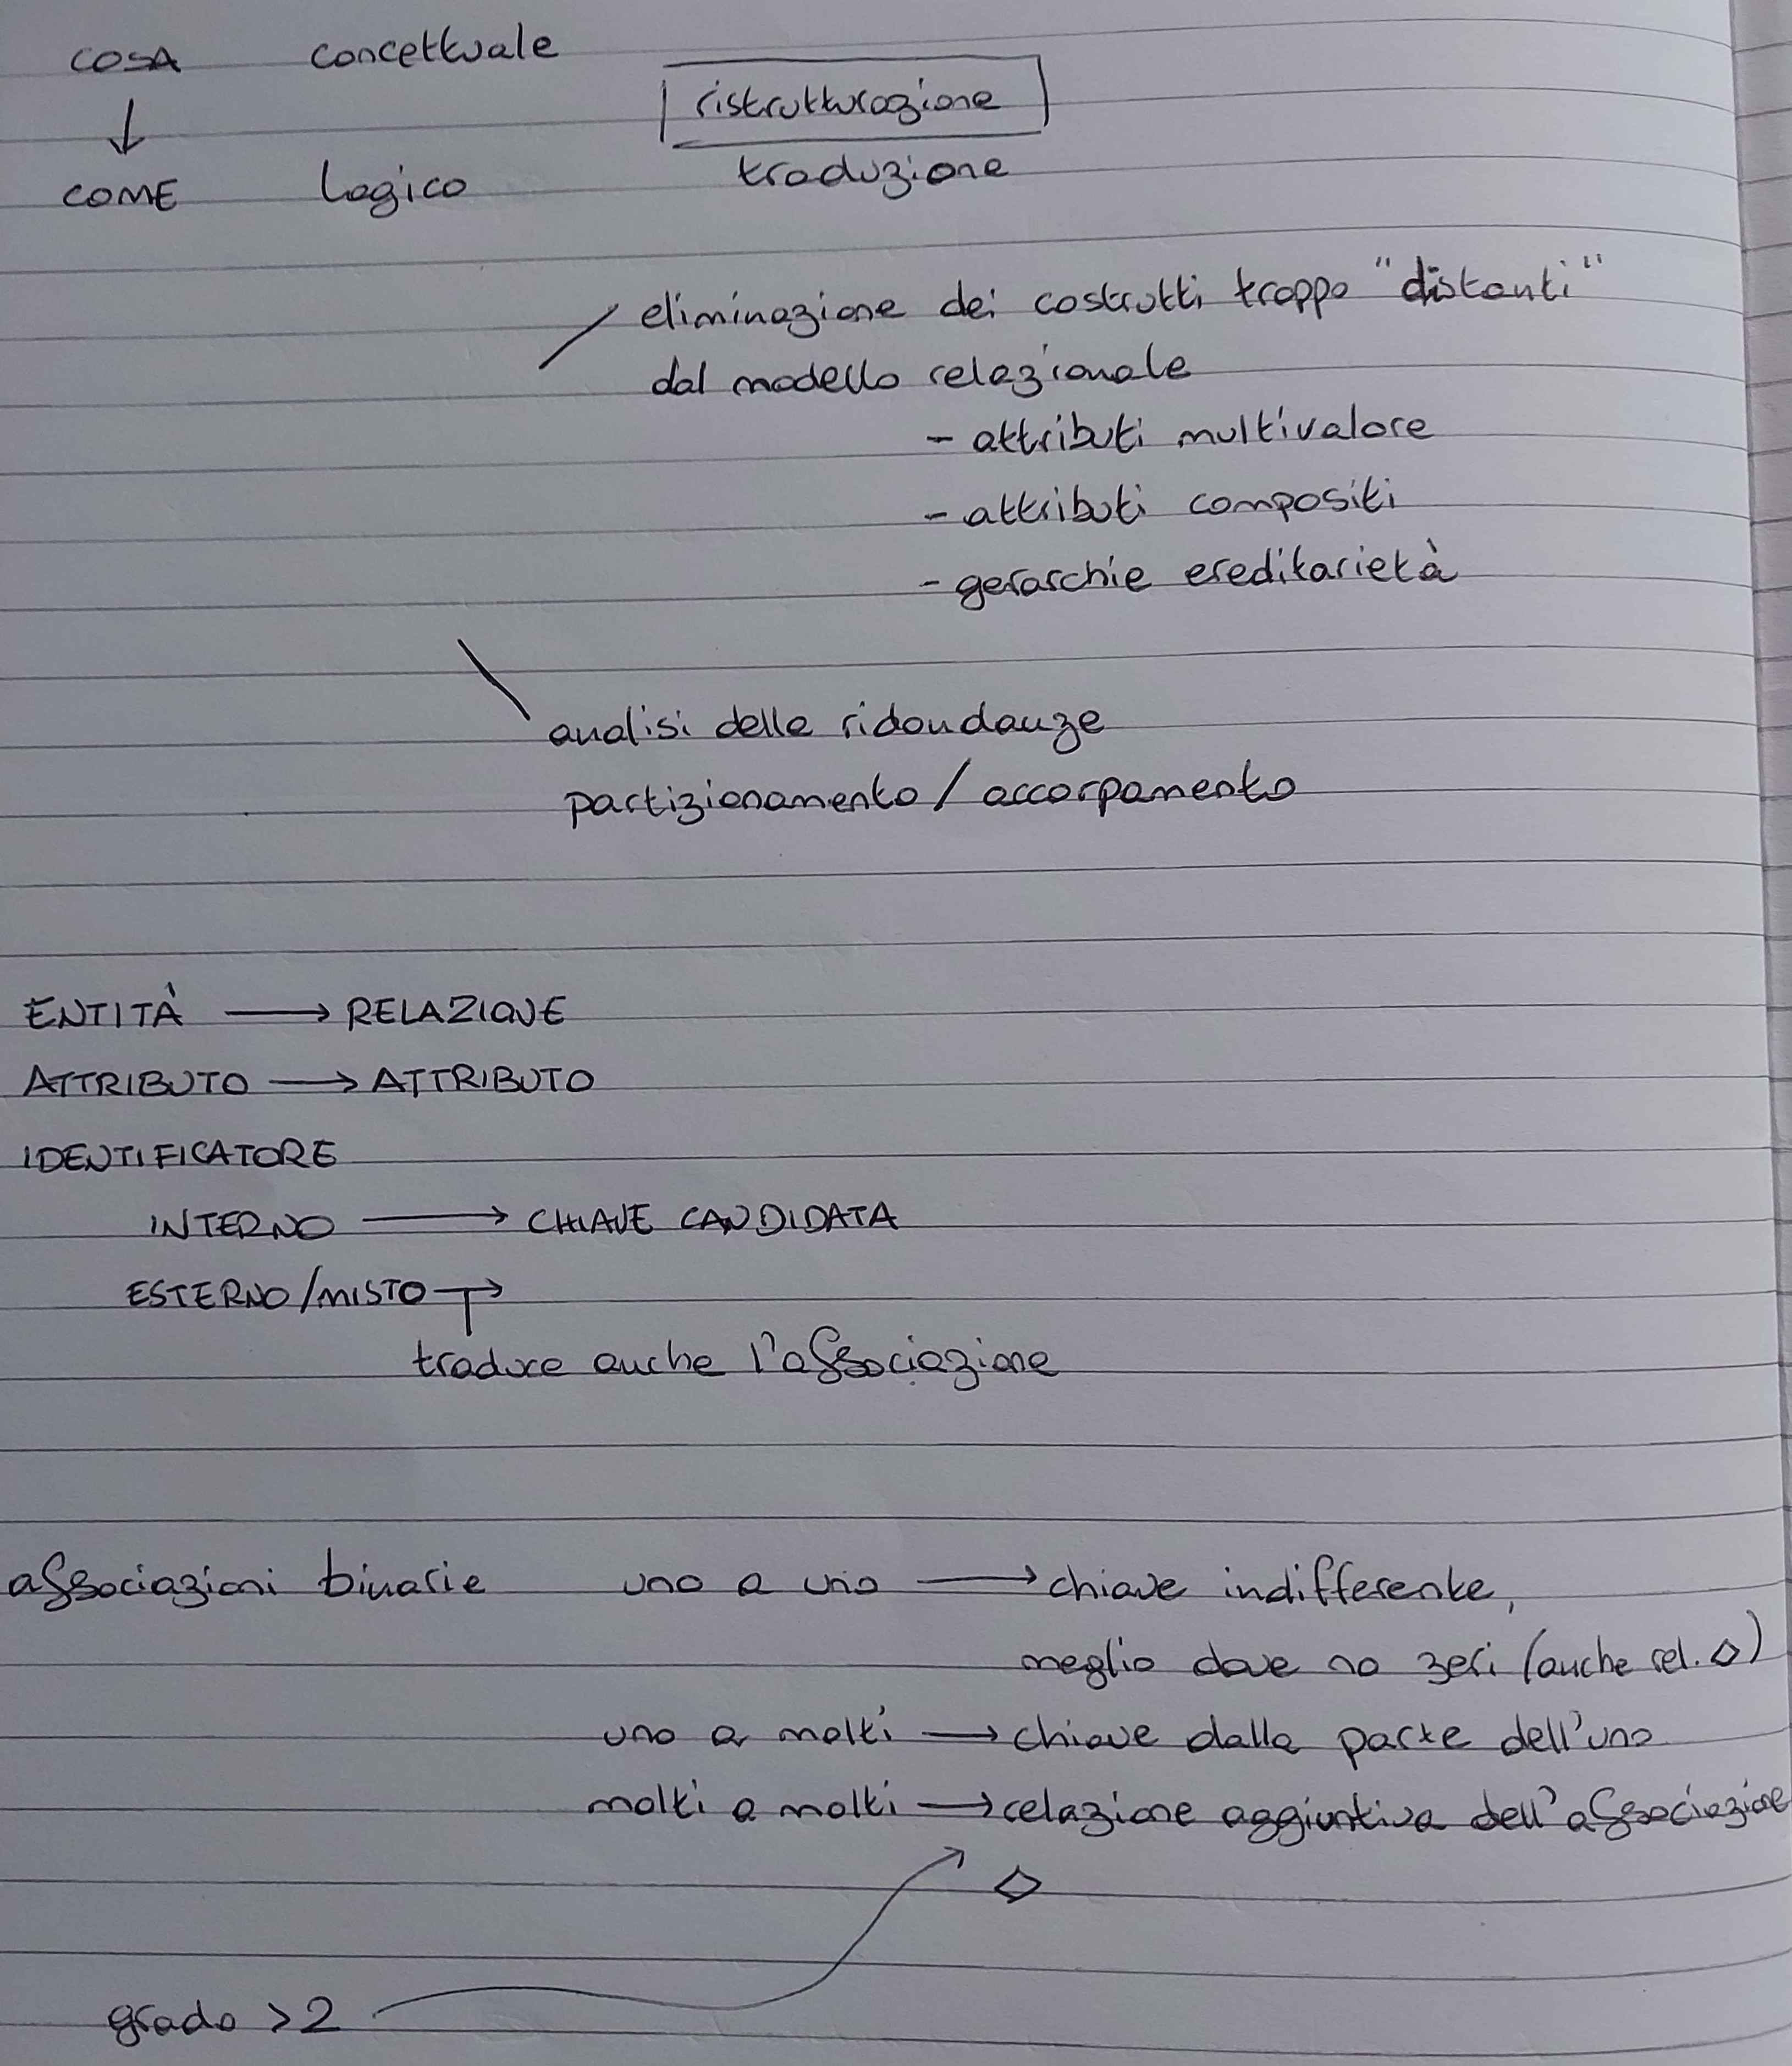 COSA concettuale
ristrutturazione
↓
COME logico traduzione
eliminazione dei costrutti troppo "distanti"
dal modello relazionale
- attributi multivalore
- attributi compositi
- gerarchie ereditarietà
analisi delle ridondanze
partizionamento / accorpamento
ENTITÀ → RELAZIONE
ATTRIBUTO → ATTRIBUTO
IDENTIFICATORE
INTERNO → CHIAVE CANDIDATA
ESTERNO/MISTO →
traduce anche l'associazione
associazioni binarie uno a uno → chiave indifferente,
meglio dove no zeri (anche rel. ◇)
uno a molti → chiave dalla parte dell'uno
molti a molti → relazione aggiuntiva dell'associazione
◇
grado >2